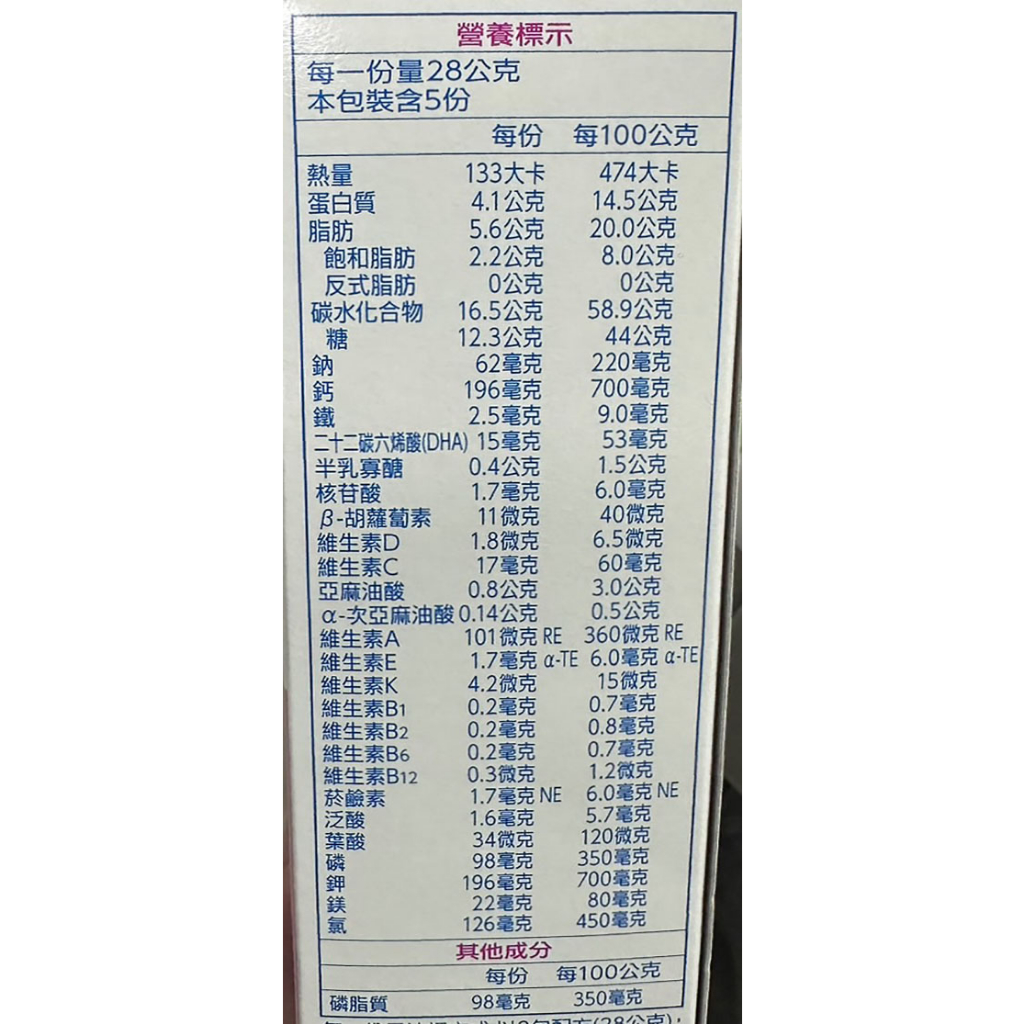 營養標示
每一份量28公克
本包裝含5份
每份 每100公克
熱量 133大卡 474大卡
蛋白質 4.1公克 14.5公克
脂肪 5.6公克 20.0公克
飽和脂肪 2.2公克 8.0公克
反式脂肪 0公克 0公克
碳水化合物 16.5公克 58.9公克
糖 12.3公克 44公克
鈉 62毫克 220毫克
鈣 196毫克 700毫克
鐵 2.5毫克 9.0毫克
二十二碳六烯酸(DHA) 15毫克 53毫克
半乳寡醣 0.4公克 1.5公克
核苷酸 1.7毫克 6.0毫克
β-胡蘿蔔素 11微克 40微克
維生素D 1.8微克 6.5微克
維生素C 17毫克 60毫克
亞麻油酸 0.8公克 3.0公克
α-次亞麻油酸 0.14公克 0.5公克
維生素A 101微克 RE 360微克 RE
維生素E 1.7毫克 α-TE 6.0毫克 α-TE
維生素K 4.2微克 15微克
維生素B1 0.2毫克 0.7毫克
維生素B2 0.2毫克 0.8毫克
維生素B6 0.2毫克 0.7毫克
維生素B12 0.3微克 1.2微克
菸鹼素 1.7毫克 NE 6.0毫克 NE
泛酸 1.6毫克 5.7毫克
葉酸 34微克 120微克
磷 98毫克 350毫克
鉀 196毫克 700毫克
鎂 22毫克 80毫克
氯 126毫克 450毫克
其他成分
每份 每100公克
磷脂質 98毫克 350毫克